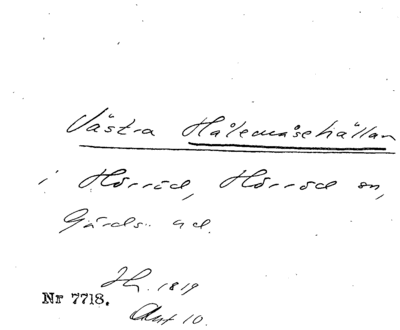 Västra Hålemåsehällan
i Hörröd, Hörröd sn,
Gärds hd.
Nr 7718.
Hr. 1819
Akt 10.